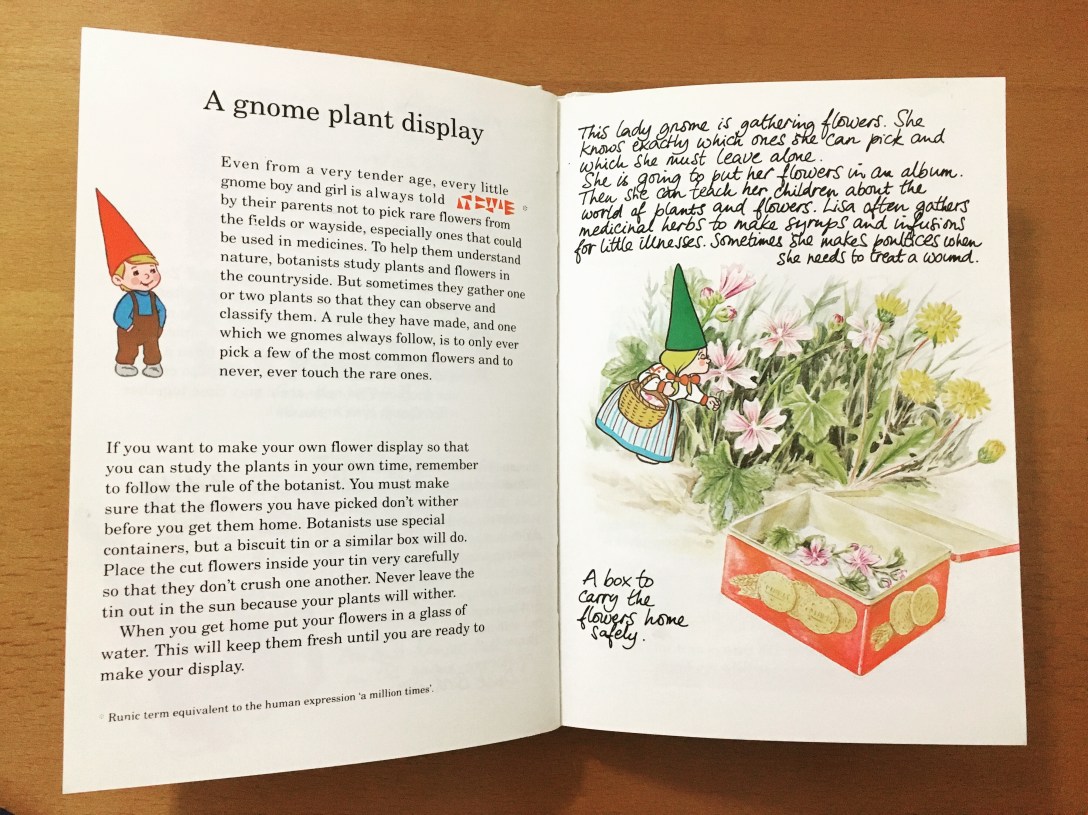 A gnome plant display
Even from a very tender age, every little
gnome boy and girl is always told
by their parents not to pick rare flowers from
the fields or wayside, especially ones that could
be used in medicines. To help them understand
nature, botanists study plants and flowers in
the countryside. But sometimes they gather one
or two plants so that they can observe and
classify them. A rule they have made, and one
which we gnomes always follow, is to only ever
pick a few of the most common flowers and to
never, ever touch the rare ones.
If you want to make your own flower display so that
you can study the plants in your own time, remember
to follow the rule of the botanist. You must make
sure that the flowers you have picked don't wither
before you get them home. Botanists use special
containers, but a biscuit tin or a similar box will do.
Place the cut flowers inside your tin very carefully
so that they don't crush one another. Never leave the
tin out in the sun because your plants will wither.
When you get home put your flowers in a glass of
water. This will keep them fresh until you are ready to
make your display.
Runic term equivalent to the human expression 'a million times'.
This lady gnome is gathering flowers. She
knows exactly which ones she can pick and
which she must leave alone.
She is going to put her flowers in an album.
Then she can teach her children about the
world of plants and flowers. Lisa often gathers
medicinal herbs to make syrups and infusions
for little illnesses. Sometimes she makes poultices when
she needs to treat a wound.
A box to
carry the
flowers home
safely.